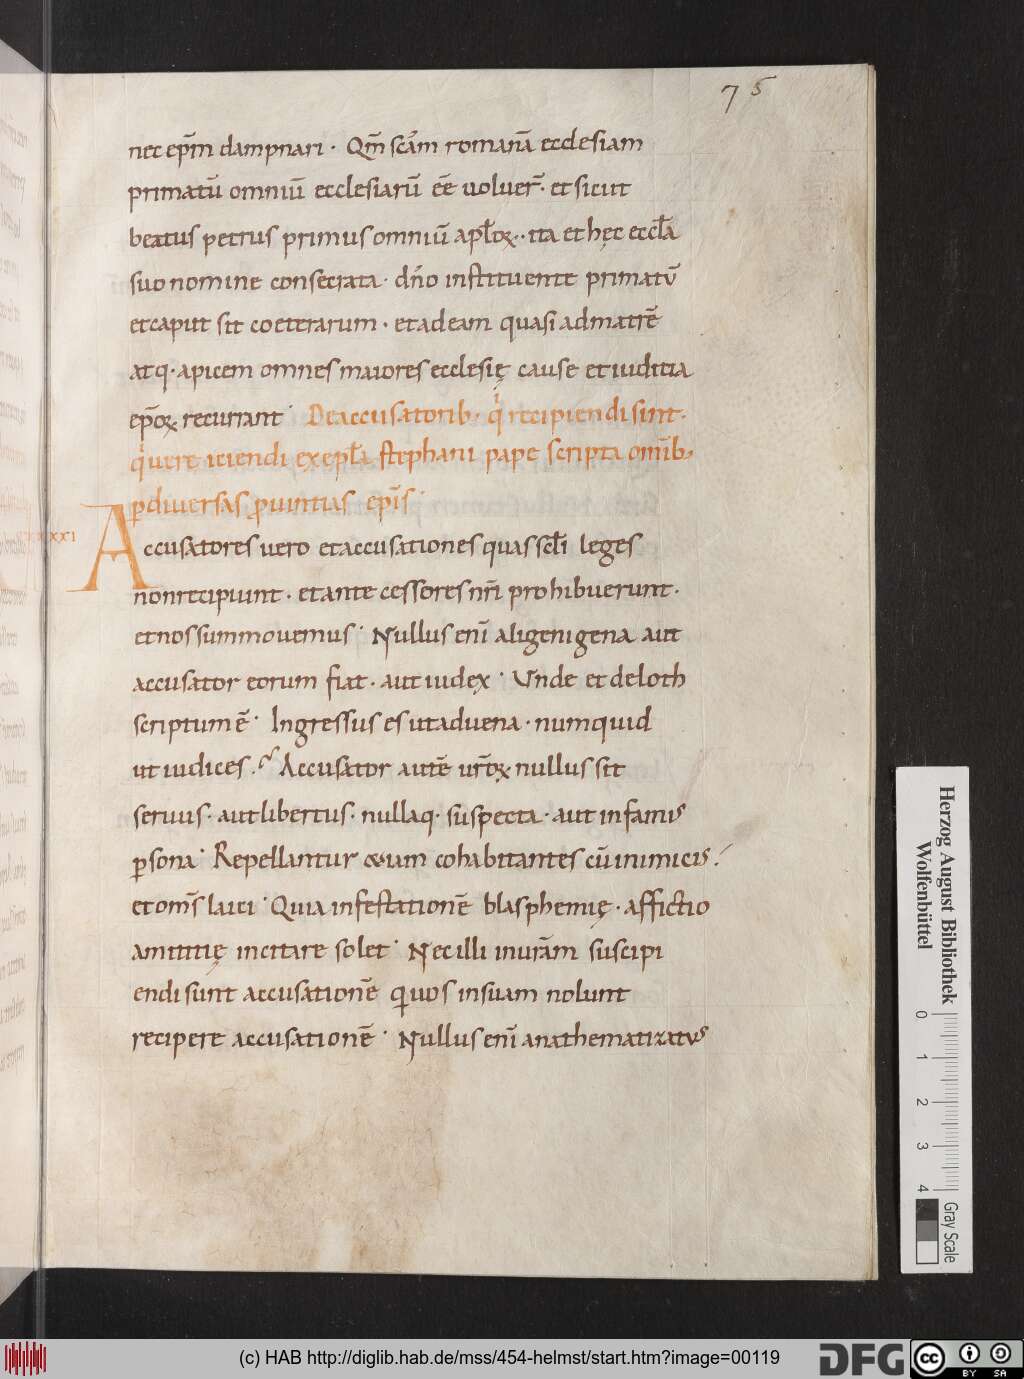 75
nec ep̄m dampnari · Qm̄ scām romanā ecclesiam
primatū omniū ecclesiarū eē uoluer̄ · et sicut
beatus petrus primus omniū apl̄oꝝ · · ita et hęc eccl̄a
suo nomine consecrata · dn̄o instituente primatū
et caput sit coeterarum · et ad eam quasi ad matrē
atq · apicem omnes maiores ecclesię cause et iuditia
ep̄oꝝ recurrant · De accusatorib · qͥ recipiendi sint ·
qͥ uere iciendi ex epl̄a stephani pape scripta om̄ib ·
ꝑ diuersas ꝓuintias ep̄is ·
xxxxi
Accusatores uero et accusationes quas scl̄i leges
non recipiunt · et antecessores nr̄i prohibuerunt ·
et nos summouemus · Nullus enī aligenigena aut
accusator eorum fiat · aut iudex · Unde et de loth
scriptum ē · Ingressus es ut aduena · numquid
ut iudices · Accusator autē ur̄oꝝ nullus sit
seruus · aut libertus · nullaq · suspecta · aut infamis
ꝑsona · Repellantur etiam cohabitantes cū inimicis ·
et om̄s laici · Quia infestationē blasphemię · affictio
amititię incitare solet · Nec illi in ur̄am suscipi
endi sunt accusationē qui uos in suam nolunt
recipere accusationē · Nullus enī anathematizatus
Herzog August Bibliothek
Wolfenbüttel
0 1 2 3 4
Gray Scale
(c) HAB http://diglib.hab.de/mss/454-helmst/start.htm?image=00119
DFG
cc
BY SA